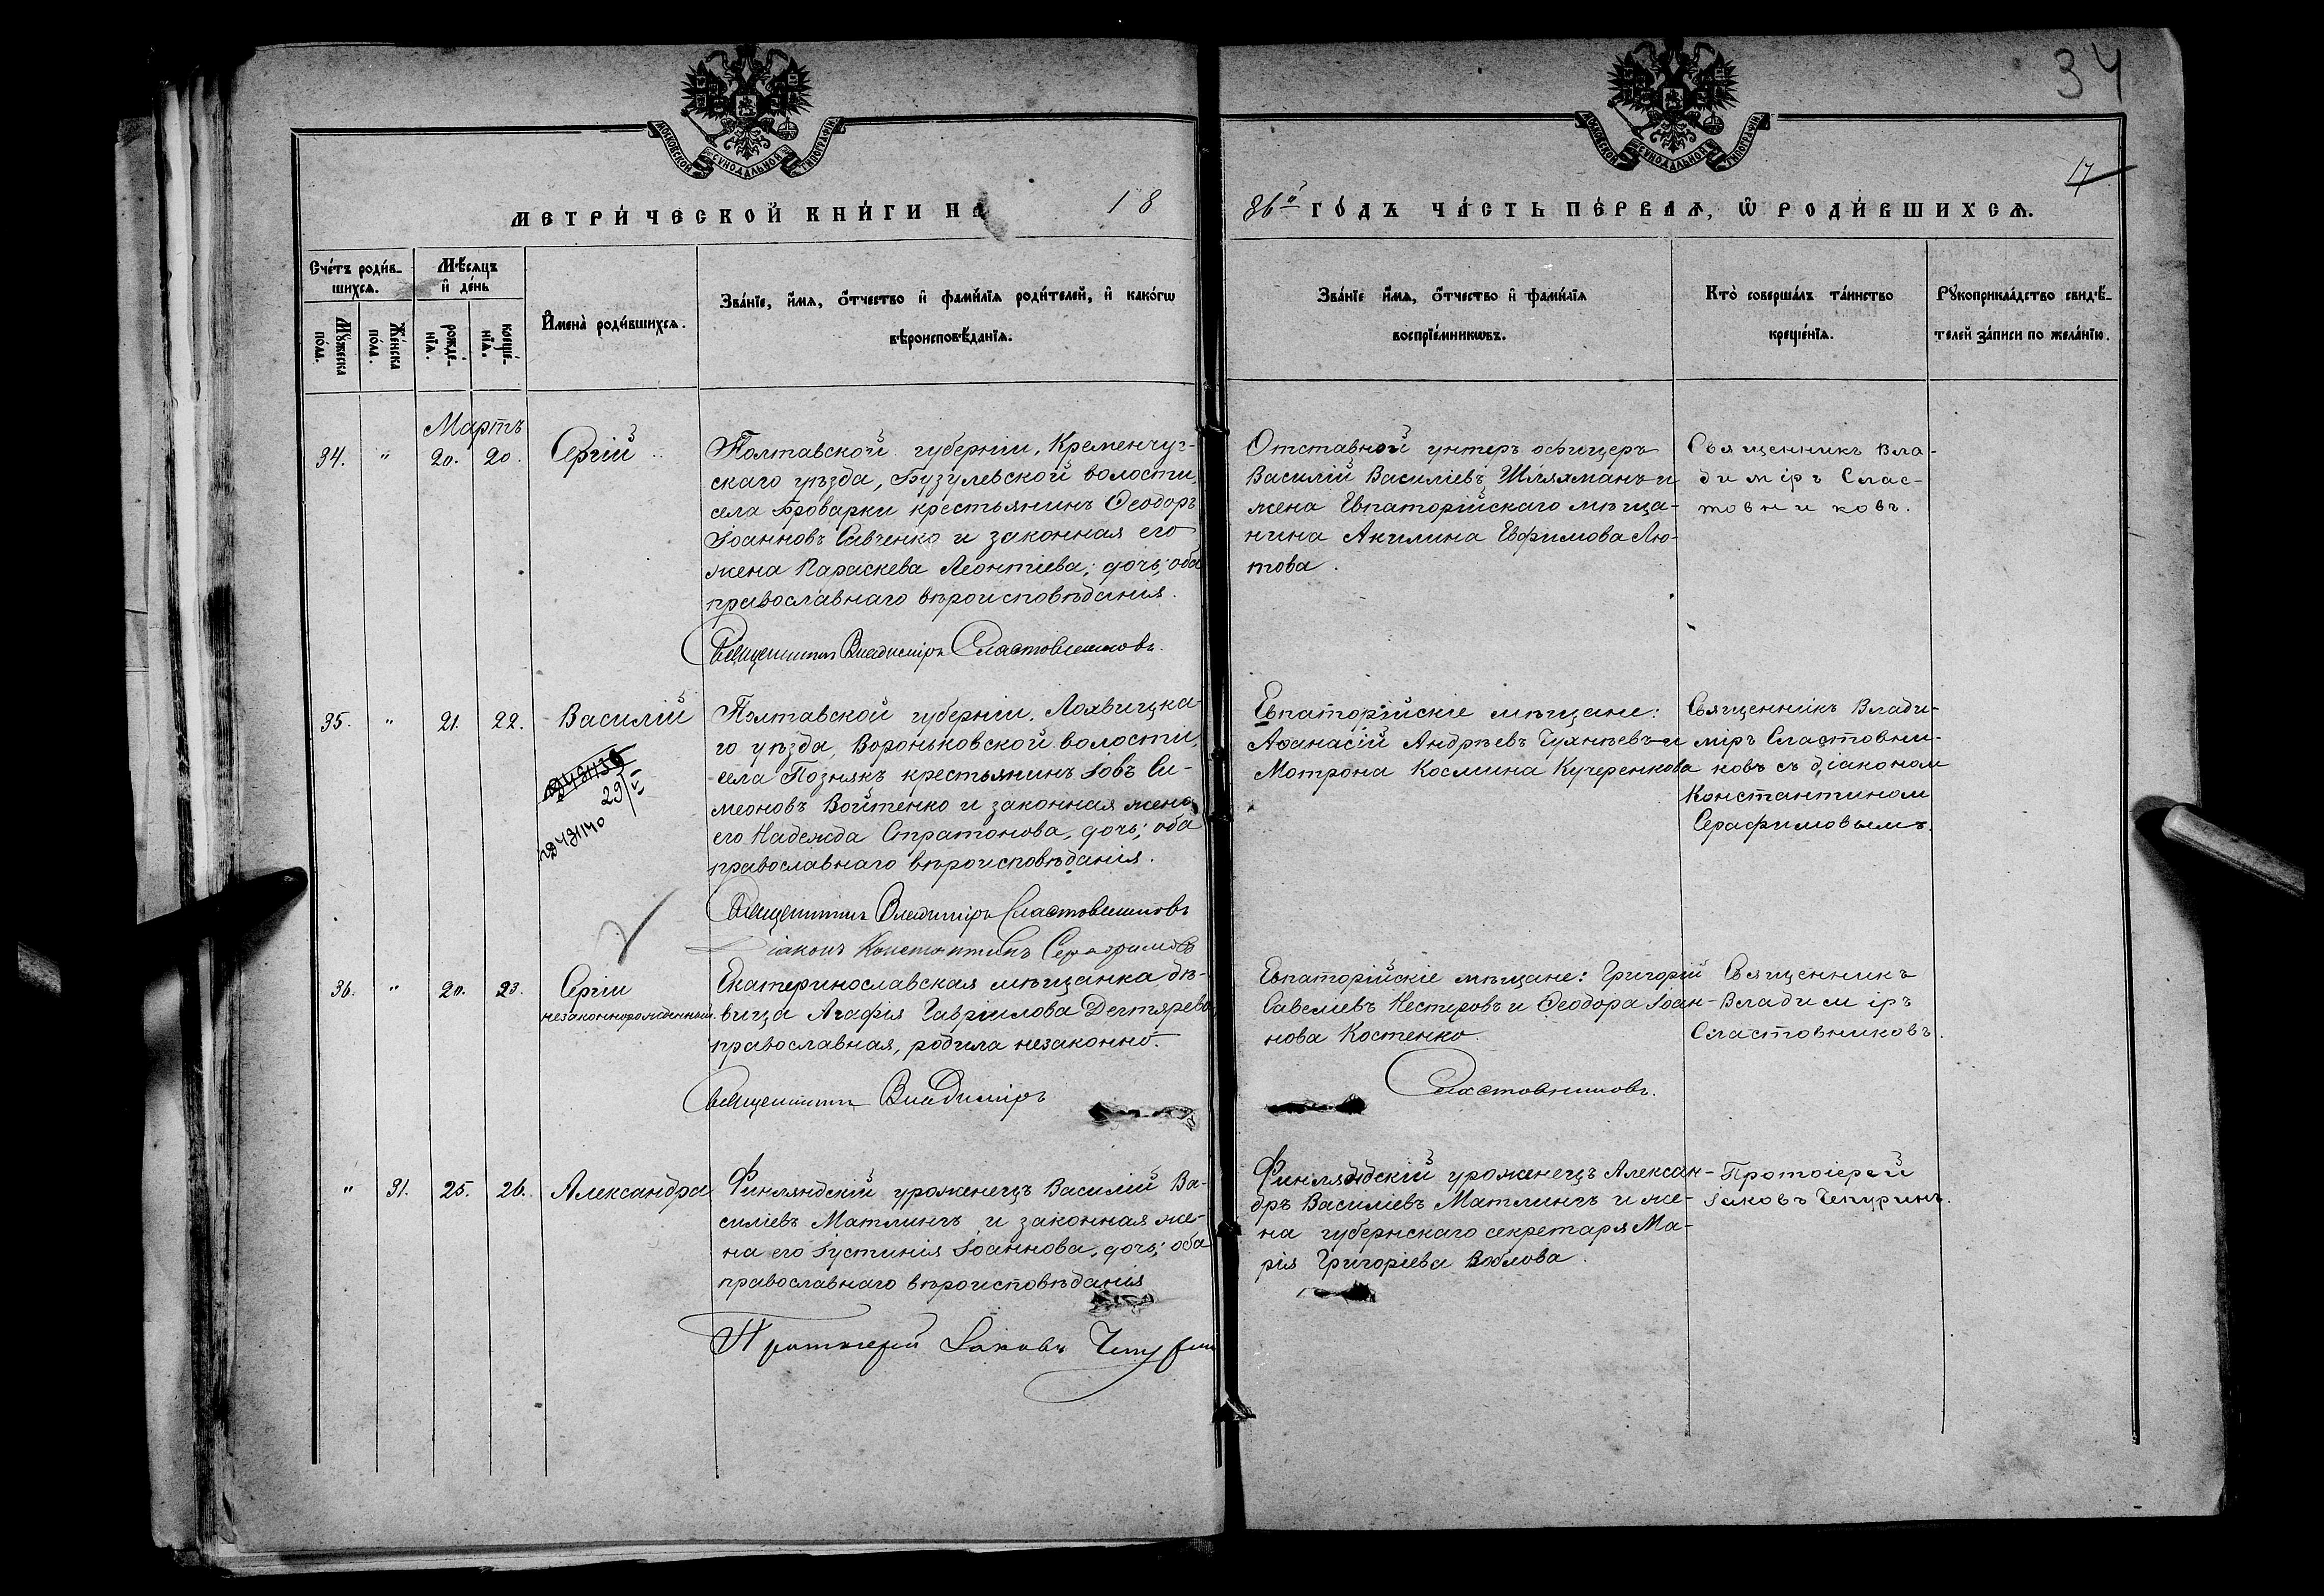 34
17
МОСКОВСКОЙ СѴНОДАЛЬНОЙ ТИПОГРАФІИ
МОСКОВСКОЙ СѴНОДАЛЬНОЙ ТИПОГРАФІИ
МЕТРИ́ЧЕСКОЙ КНИ́ГИ НА 18
86й ГО́ДЪ ЧА́СТЬ ПЕ́РВАѦ, Ѡ РОДИ́ВШИХСѦ.
Сче́тъ роди́в-
шихсѧ.
Мѣ́сѧцъ
и де́нь
Мꙋ́жеска
по́ла.
Же́нска
по́ла.
рожде́-
нїѧ.
креще́-
нїѧ.
Имена̀ роди́вшихсѧ.
Зва́нїе, и́мѧ, о́тчество и фами́лїѧ роди́телей, и како́гѡ
вѣроисповѣ́данїѧ.
Зва́нїе и́мѧ, о́тчество и фами́лїѧ
воспрїе́мникѡвъ.
Кто̀ соверша́лъ та́инство
креще́нїѧ.
Рꙋкоприкла́дство свидѣ́-
телей за́писи по жела́нїю.
Мартъ
34. " 20. 20. Сергій
Полтавской губерніи, Кременчуг-
скаго уѣзда, Бузулевской волости,
села Броварки крестьянинъ Ѳеодоръ
Іоанновъ Савченко и законная его
жена Параскева Леонтіева, дочь; оба
православнаго вѣроисповѣданія.
Священникъ Владиміръ Сластовниковъ.
Отставной унтеръ офицеръ
Василій Василіевъ Шляхманъ и
жена Евпаторійскаго мѣща-
нина Акилина Евфимова Лю-
това.
Священникъ Вла-
диміръ Слас-
товниковъ.
35. " 21. 22. Василій
29/VI
Полтавской губерніи, Лохвицка-
го уѣзда, Вороньковской волости,
села Познякъ крестьянинъ Іовъ Си-
меоновъ Войтенко и законная жена
его Надежда Стратонова, дочь; оба
православнаго вѣроисповѣданія.
Священникъ Владиміръ Сластовниковъ
Діаконъ Константинъ Серафимовъ
Евпаторійскіе мѣщане:
Аѳанасій Андреевъ Чухнѣевъ и
Мотрона Космина Кучеренкова
Священникъ Влади-
міръ Сластовни-
ковъ съ діакономъ
Константиномъ
Серафимовымъ.
36. " 20. 23. Сергій
незаконнорожденный.
Екатеринославская мѣщанка дѣ-
вица Агафія Гавріилова Дегтярева,
православная, родила незаконно.
Священникъ Владиміръ
Евпаторійскіе мѣщане: Григорій
Савеліевъ Нестеровъ и Ѳеодора Іоан-
нова Костенко.
Сластовниковъ.
Священникъ
Владиміръ
Сластовниковъ.
" 31. 25. 26. Александра
Финляндскій уроженецъ Василій Ва-
силіевъ Матлингъ и законная же-
на его Іустинія Іоаннова, дочь; оба
православнаго вѣроисповѣданія
Протоіерей Іаковъ Чепурин
Финляндскій уроженецъ Алексан-
дръ Василіевъ Матлингъ и же-
на губернскаго секретаря Ма-
рія Григоріева
Протоіерей
Іаковъ Чепуринъ.